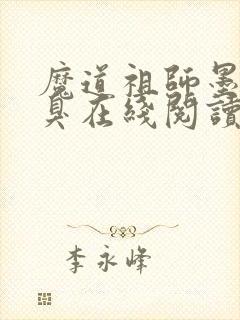 魔道祖師墨
臭在綫閱讀
李永峰